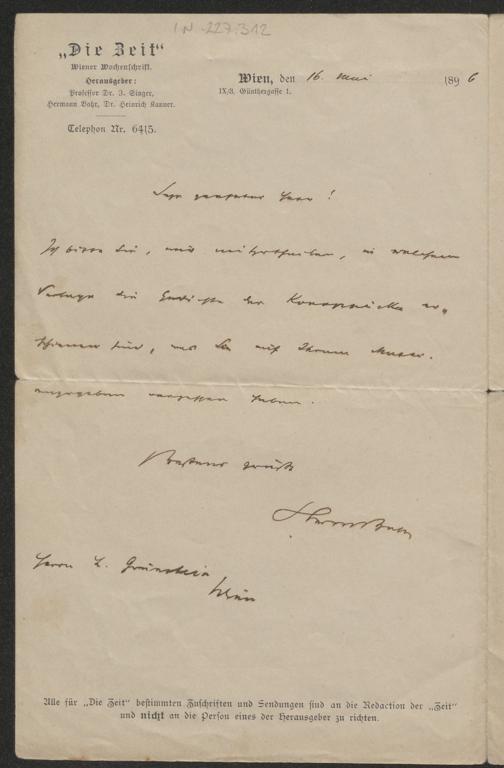 IN 227.312
„Die Zeit“
Wiener Wochenschrift.
Herausgeber:
Professor Dr. I. Singer,
Hermann Bahr, Dr. Heinrich Kanner.
Telephon Nr. 6415.
Wien, den 16. Mai 1896
IX/3, Günthergasse 1.
Sehr geehrter Herr!
Ich bitte Sie, mir mitzutheilen, in welchem
Verlage die Gedichte der Konopnicka er-
schienen sind, was Sie auf Ihrem Muscr.
anzugeben vergessen haben.
Bestens grüßt
Hermann Bahr
Herrn L. Grünstein
Wien
Alle für „Die Zeit“ bestimmten Zuschriften und Sendungen sind an die Redaction der „Zeit“
und nicht an die Person eines der Herausgeber zu richten.